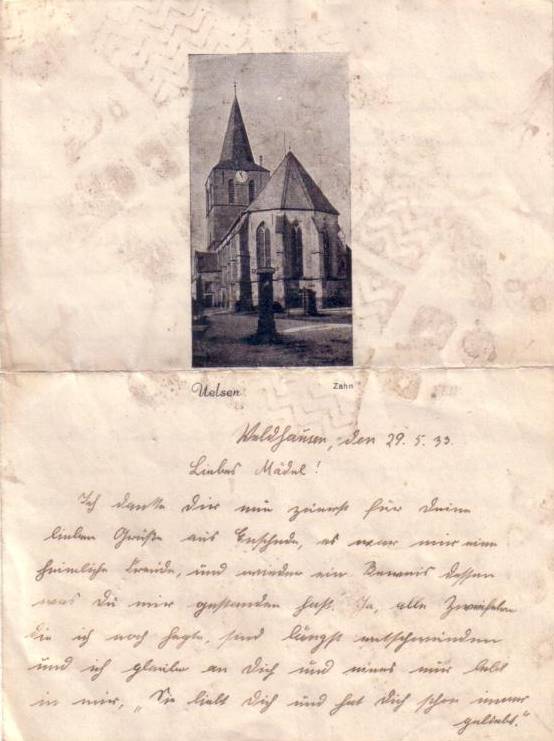 Uelsen
Zahn
Veldhausen, den 29. 5. 33.
Liebes Mädel!
Ich danke dir nun zuerst für deine
lieben Grüße aus Enschede, es war mir eine
heimliche Freude, und wieder ein Beweis dessen
was du mir gestanden hast. Ja, alle Zweifel
die ich noch hegte, sind längst entschwunden
und ich glaube an dich und eines nur lebt
in mir, „Sie liebt dich und hat dich schon immer
geliebt."